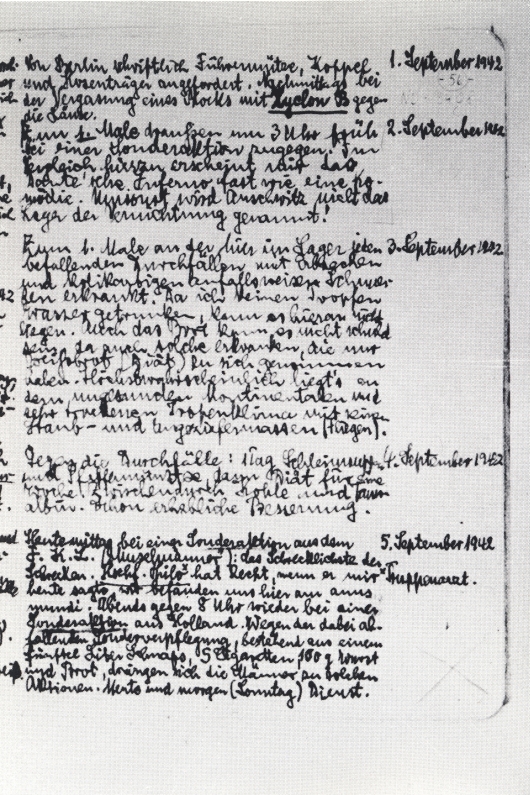 Von Berlin schriftlich Führermütze, Koppel 1. September 1942
und Hosenträger angefordert. Nachmittags bei
der Vergasung eines Blocks mit Zyklon B gegen
die Läuse.
Zum 1. Male draußen um 3 Uhr früh 2. September 1942
bei einer Sonderaktion zugegen. Im
Vergleich hierzu erscheint mir das
Dante'sche Inferno fast wie eine Ko-
mödie. Umsonst wird Auschwitz nicht das
Lager der Vernichtung genannt!
Zum 1. Male an den hier im Lager jeden 3. September 1942
befallenden Durchfällen mit Erbrechen
und kolikartigen anfallsweisen Schmer-
zen erkrankt. Da ich keinen Tropfen
Wasser getrunken, kann es hieran nicht
liegen. Auch das Brot kann es nicht schuld
sein, da auch solche erkranken, die nur
Weißbrot (Diät) zu sich genommen
haben. Höchstwahrscheinlich liegt's an
dem ungesunden kontinentalen und
sehr trockenen Tropenklima mit seinen
Staub- und Ungeziefermassen (Fliegen).
Gegen die Durchfälle: 1 Tag Schleimsuppe 4. September 1942
und Pfefferminztee, dann Diät für eine
Woche. Zwischendurch Kohle und Tann-
albin. Schon erhebliche Besserung.
Heute mittag bei einer Sonderaktion aus dem 5. September 1942
F.K.L. ("Muselmänner"): das Schrecklichste der
Schrecken. Hschf. Thilo hat Recht, wenn er mir Truppenarzt.
heute sagte, wir befänden uns hier am anus
mundi. Abends gegen 8 Uhr wieder bei einer
Sonderaktion aus Holland. Wegen der dabei ab-
fallenden Sonderverpflegung, bestehend aus einem
fünftel Liter Schnaps, 5 Zigaretten 100 g Wurst
und Brot, drängen sich die Männer zu solchen
Aktionen. Heute und morgen (Sonntag) Dienst.